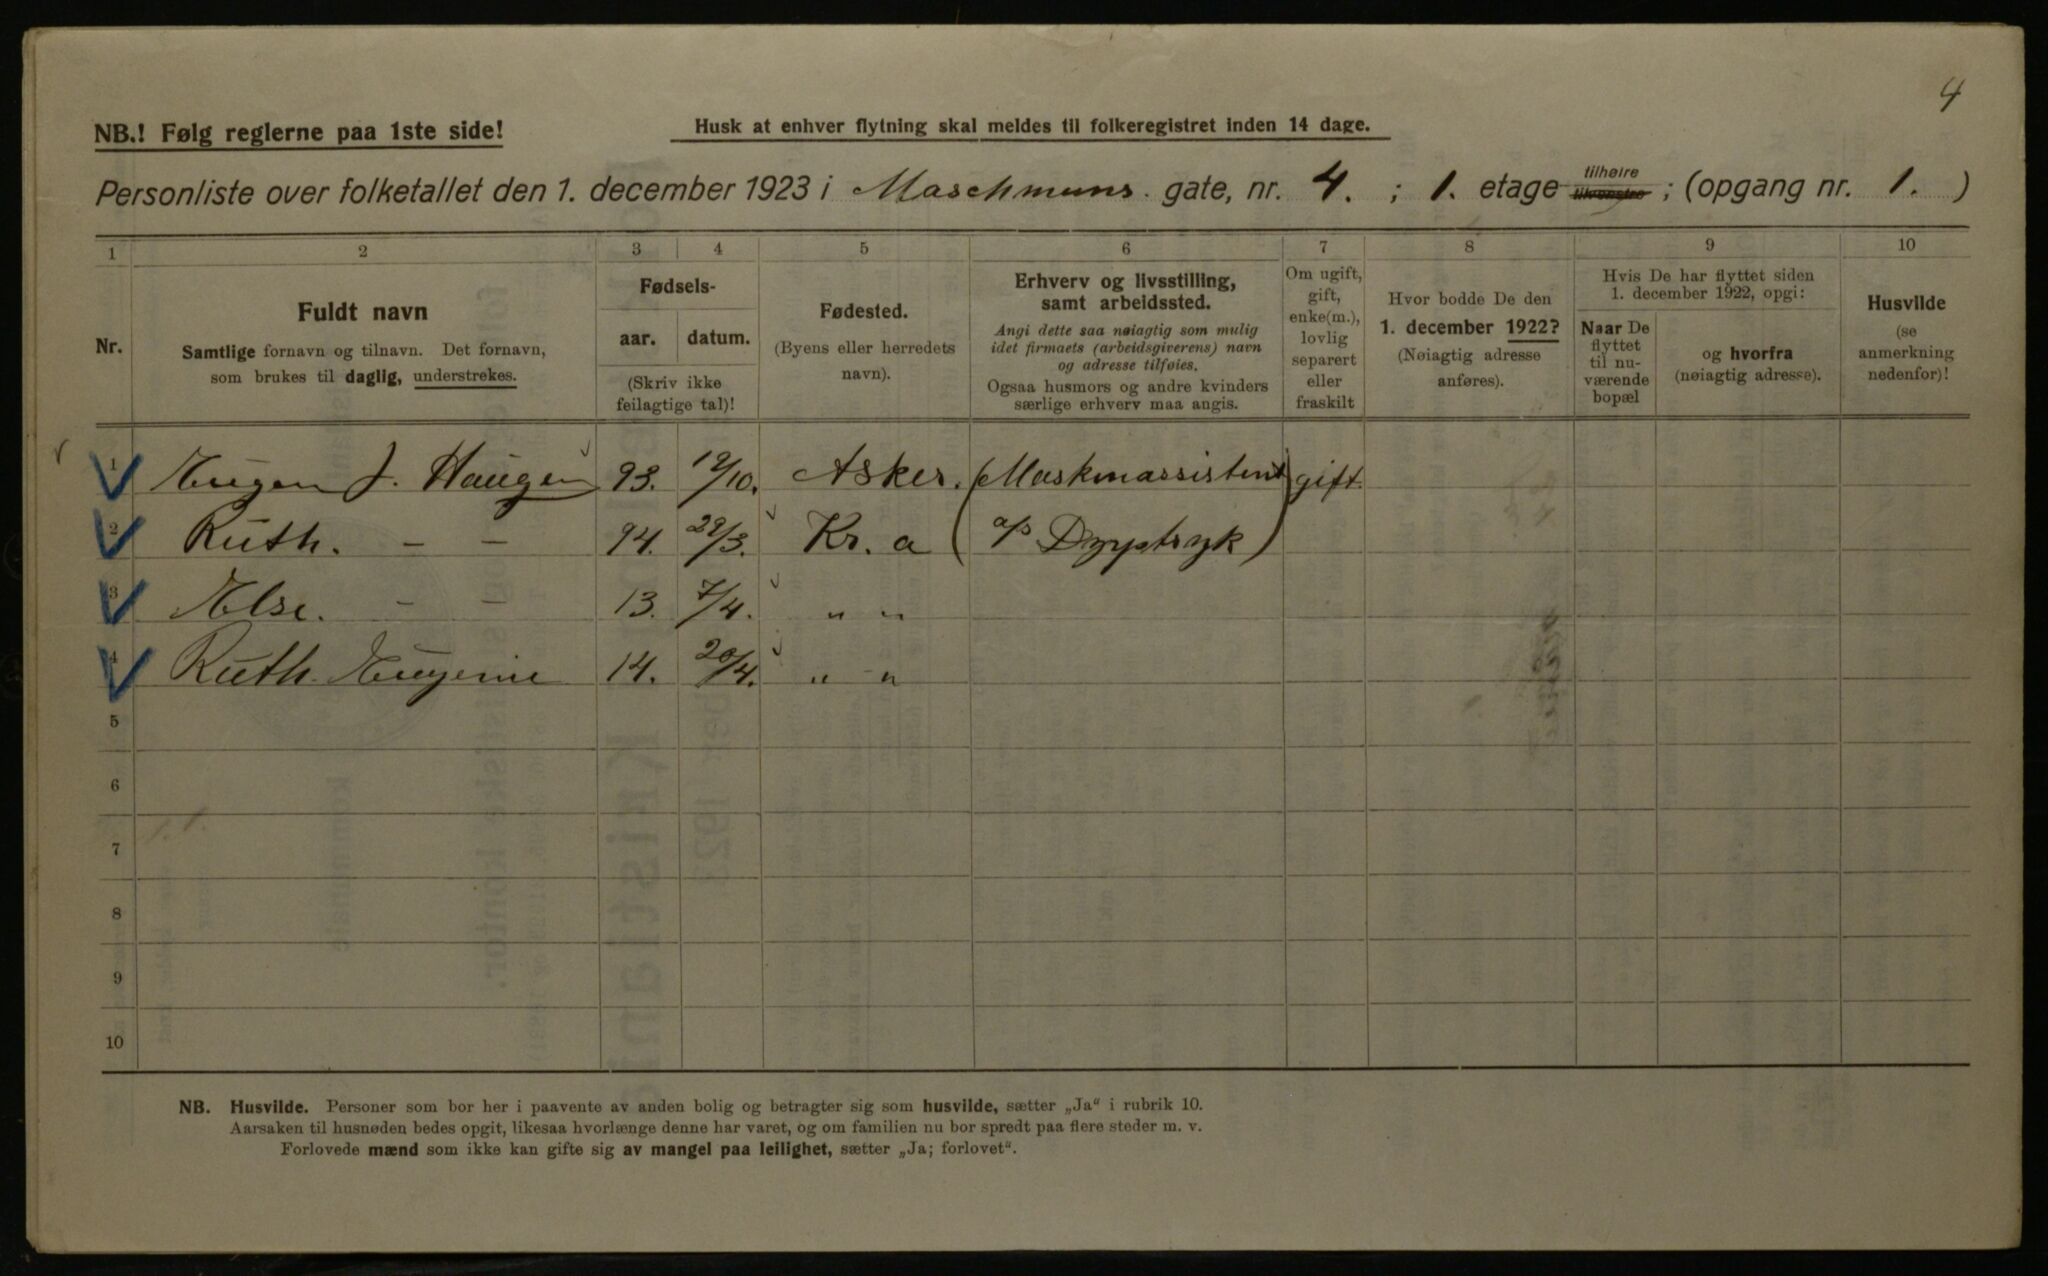 4
NB.! Følg reglerne paa 1ste side!
Husk at enhver flytning skal meldes til folkeregistret inden 14 dage.
Personliste over folketallet den 1. december 1923 i Maschmuns gate, nr. 4. ; 1. etage tilhøire tilvenstre ; (opgang nr. 1. )
1 2 3 4 5 6 7 8 9 10
Nr.
Fuldt navn
Samtlige fornavn og tilnavn. Det fornavn,
som brukes til daglig, understrekes.
Fødsels-
aar. datum.
(Skriv ikke
feilagtige tal)!
Fødested.
(Byens eller herredets
navn).
Erhverv og livsstilling,
samt arbeidssted.
Angi dette saa nøiagtig som mulig
idet firmaets (arbeidsgiverens) navn
og adresse tilføies.
Ogsaa husmors og andre kvinders
særlige erhverv maa angis.
Om ugift,
gift,
enke(m.),
lovlig
separert
eller
fraskilt
Hvor bodde De den
1. december 1922?
(Nøiagtig adresse
anføres).
Hvis De har flyttet siden
1. december 1922, opgi:
Naar De
flyttet
til nu-
værende
bopæl
og hvorfra
(nøiagtig adresse).
Husvilde
(se
anmerkning
nedenfor)!
1 Eugen J. Haugen 93. 19/10. Asker. (Maskinassistent) gift.
2 Ruth. – – 94. 29/3. Kr. a (a/s Dyptryk)
3 Else. – – 13. 7/4. " "
4 Ruth. Eugenie 14. 20/4. " "
5
6
7
8
9
10
NB. Husvilde. Personer som bor her i paavente av anden bolig og betragter sig som husvilde, sætter „Ja“ i rubrik 10.
Aarsaken til husnøden bedes opgit, likesaa hvorlænge denne har varet, og om familien nu bor spredt paa flere steder m. v.
Forlovede mænd som ikke kan gifte sig av mangel paa leilighet, sætter „Ja; forlovet“.